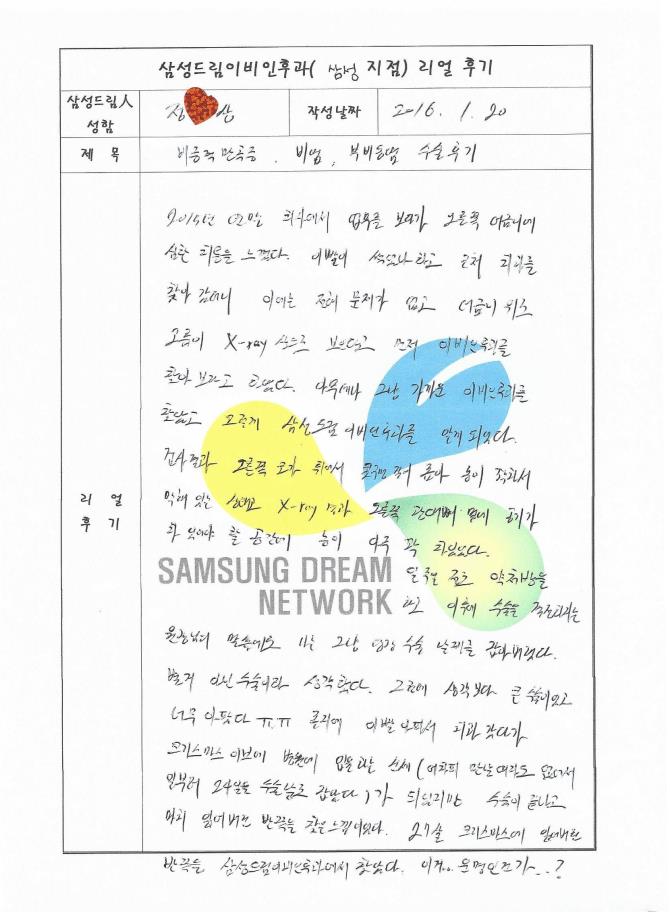 삼성드림이비인후과( 삼성 지점) 리얼 후기
삼성드림人
성함
정 산
작성날짜
2016. 1. 20
제 목
비중격만곡증, 비염, 부비동염 수술후기
리 얼
후 기
2015년 연말 회사에서 업무를 보다가 오른쪽 어금니에
심한 치통을 느꼈다. 이빨이 썩었나 하고 근처 치과를
찾아 갔더니 이에는 전혀 문제가 없고 어금니 위쪽
고름이 X-ray 상으로 보인다고 먼저 이비인후과를
찾아 보라고 하였다. 그냥 가까운 이비인후과를
찾았고 그렇게 삼성드림이비인후과를 알게 되었다.
검사결과 오른쪽 코가 휘어서 콧구멍 농이
막혀 있는 상태고 X-ray 결과 오른쪽 광대뼈 옆에 공기가
차 있어야 할 공간에 농이 아주 꽉 차있었다.
SAMSUNG DREAM
NETWORK
일주일 정도 약처방을
하고 이후에 수술을
원장님의 말씀에도 나는 그냥 당장 수술 날짜를 잡아버렸다.
별거 아닌 수술이라 생각했다. 그런데 생각보다 큰 수술이었고
너무 아팠다 ㅠ.ㅠ 졸지에 이빨 아파서 치과 갔다가
크리스마스 이브에 병원에 입원하는 신세 (어차피 만날 여자도 없어서
일부러 24일을 수술날로 잡았다)가 되었지만 수술이 끝나고
마치 잃어버린 반쪽을 찾은 느낌이었다. 27살 크리스마스에 잃어버린
반쪽을 삼성드림이비인후과에서 찾았다. 이거.. 운명인건가...?